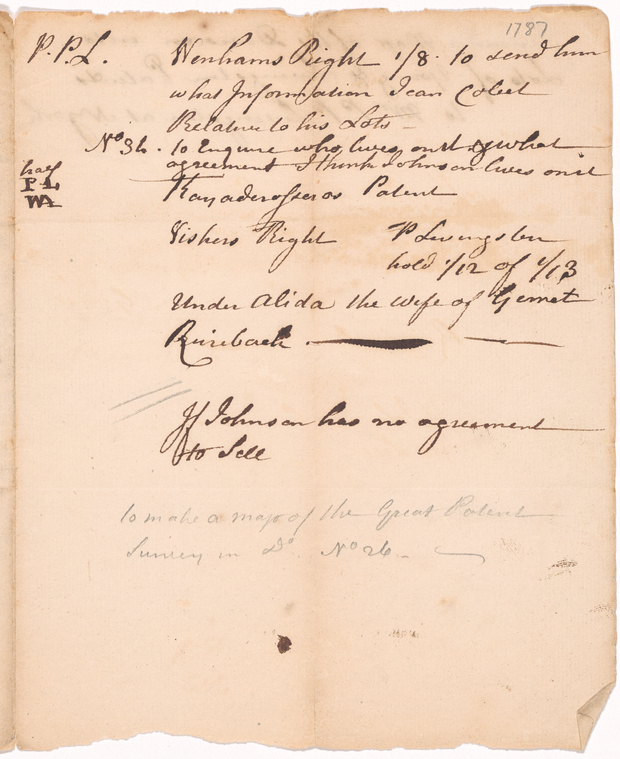 1787
P. P. L. Wenhams Right 1/8. to send him
what Information I can Colect
Relative to his Lots
No 36. to Enquire who lives on it & what
agreement I think Johnson lives on it
half
P L Kayaderosseros Patent
Vishers Right P Livingston
hold 1/12 of 1/13
Under Alida the wife of Gerret
If Johnson has no agreement
to Sell
to make a map of the Great Patent
Survey in Do No 26